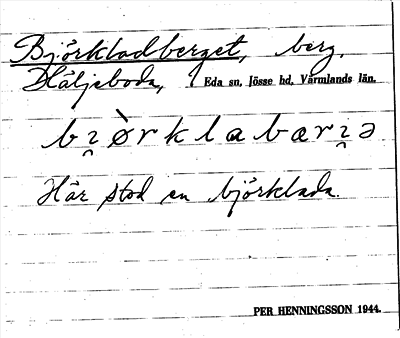 Björkladberget, berg.
Häljeboda, Eda sn, Jösse hd, Värmlands län.
bi̯ørklabæri̯ə
Här stod en björklada.
PER HENNINGSSON 1944.